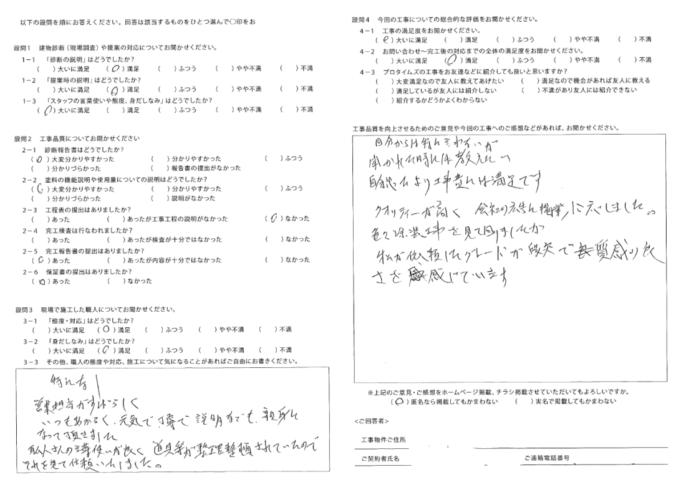 以下の設問を順にお答えください。回答は該当するものをひとつ選んで〇印をお
設問1　建物診断（現場調査）や提案の対応についてお聞かせください。
1－1　「診断の説明」はどうでしたか?
（　）大いに満足　（〇）満足　（　）ふつう　（　）やや不満　（　）不満
1－2　「提案時の説明」はどうでしたか?
（　）大いに満足　（〇）満足　（　）ふつう　（　）やや不満　（　）不満
1－3　「スタッフの言葉使いや態度、身だしなみ」はどうでしたか?
（〇）大いに満足　（　）満足　（　）ふつう　（　）やや不満　（　）不満
設問2　工事品質についてお聞かせください
2－1　診断報告書はどうでしたか?
（〇）大変分かりやすかった　（　）分かりやすかった　（　）ふつう
（　）分かりづらかった　（　）報告書の提出がなかった
2－2　塗料の機能説明や使用量についての説明はどうでしたか?
（〇）大変分かりやすかった　（　）分かりやすかった　（　）ふつう
（　）分かりづらかった　（　）説明がなかった
2－3　工程表の提出はありましたか?
（　）あった　（　）あったが工事工程の説明がなかった　（〇）なかった
2－4　完工検査は行なわれましたか?
（　）あった　（　）あったが検査が十分ではなかった　（　）なかった
2－5　完工報告書の提出はありましたか?
（〇）あった　（　）あったが内容が十分ではなかった　（　）なかった
2－6　保証書の提出はありましたか?
（〇）あった　（　）なかった
設問3　現場で施工した職人についてお聞かせください。
3－1　「態度・対応」はどうでしたか?
（　）大いに満足　（〇）満足　（　）ふつう　（　）やや不満　（　）不満
3－2　「身だしなみ」はどうでしたか?
（　）大いに満足　（〇）満足　（　）ふつう　（　）やや不満　（　）不満
3－3　その他、職人の態度や対応、施工について気になることがあればご自由にお書きください。
特になし
営業担当がすばらしく
いつもあかるく、元気で、丁寧で説明までも、親身に
なって頂きました
職人さんの言葉使いが良く 道具等が整理整頓されていたので
それを見て依頼いたしました。
設問4　今回の工事についての総合的な評価をお聞かせください。
4－1　工事の満足度をお聞かせください。
（〇）大いに満足　（　）満足　（　）ふつう　（　）やや不満　（　）不満
4－2　お問い合わせ～完工後の対応までの全体の満足度をお聞かせください。
（　）大いに満足　（〇）満足　（　）ふつう　（　）やや不満　（　）不満
4－3　プロタイムズの工事をお友達などに紹介しても良いと思いますか?
（　）大変満足なので友人に教えてあげたい　（　）満足なので機会があれば友人に教える
（　）満足しているが友人には紹介しない　（　）不満があり友人には紹介できない
（　）紹介するかどうかよくわからない
工事品質を向上させるためのご意見や今回の工事へのご感想などがあれば、お聞かせください。
自分からは
聞かれた時には教えたい
より工事には満足です
クオリティーが高く
を見て回りましたが
私が依頼したグレードが
さを感じています
※上記のご意見・ご感想をホームページ掲載、チラシ掲載させていただいてもよろしいですか。
（〇）匿名なら掲載してもかまわない　（　）実名で掲載してもかまわない
<ご回答者>
工事物件ご住所
ご契約者氏名
ご連絡電話番号